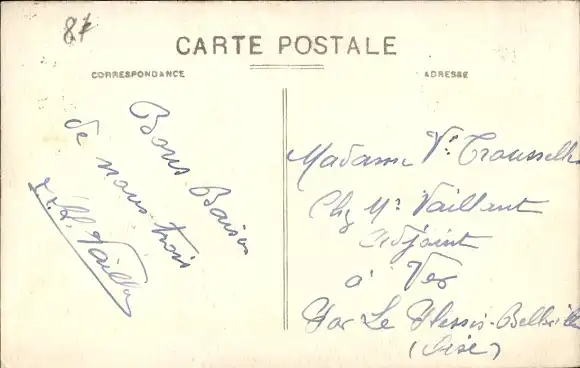 87
CARTE POSTALE
CORRESPONDANCE
ADRESSE
Bons Baisers
de nous trois
Vaillant
Madame Vᵉ Trousselle
Chez Mʳ Vaillant
adjoint
à Ver
Par Le Plessis-Belleville
(Oise)